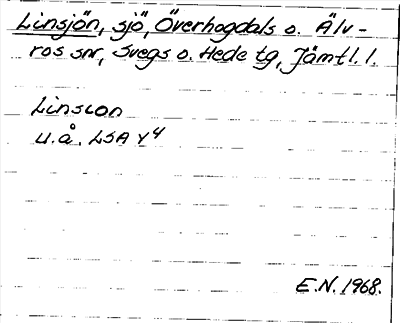 Linsjön, sjö, Överhogdals o. Älv-
ros snr, Svegs o. Hede tg, Jämtl. l.
Linsion
u.å. LSA Y4
E.N. 1968.